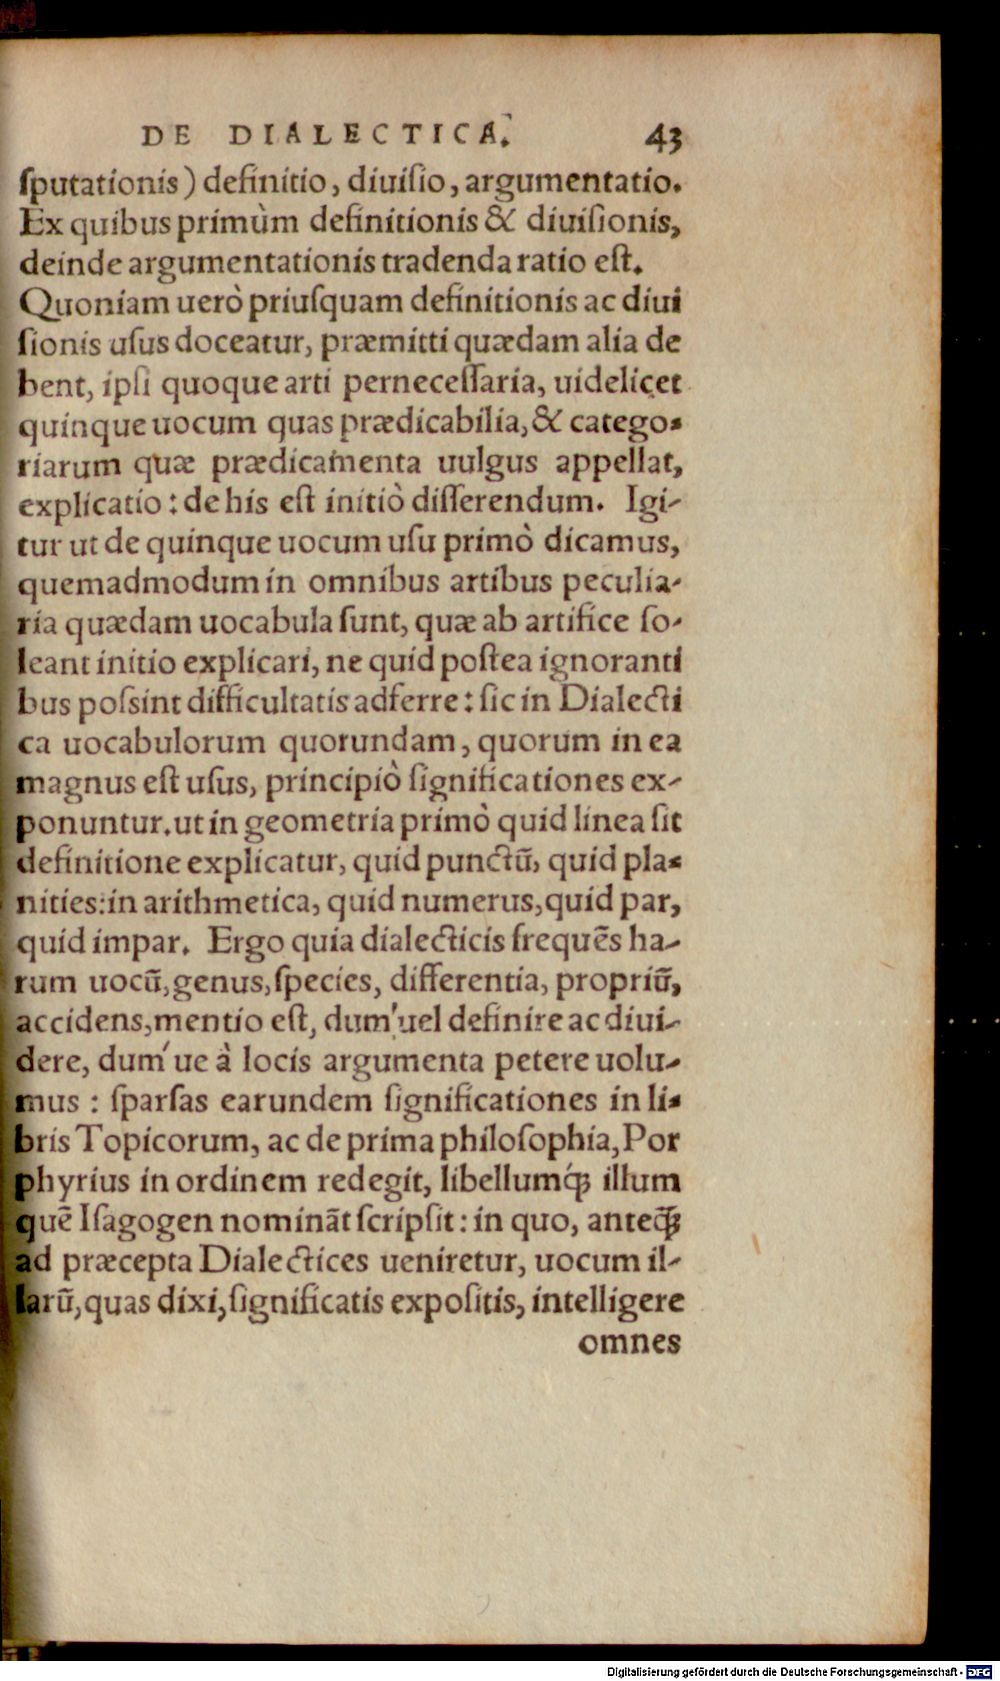 DE DIALECTICA. 43
ſputationis) definitio, diuiſio, argumentatio.
Ex quibus primùm definitionis & diuiſionis,
deinde argumentationis tradenda ratio eſt.
Quoniam uerò priuſquam definitionis ac diui
ſionis uſus doceatur, præmitti quædam alia de
bent, ipſi quoque arti perneceſſaria, uidelicet
quinque uocum quas prædicabilia, & catego-
riarum quæ prædicamenta uulgus appellat,
explicatio: de his eſt initiò diſſerendum. Igi-
tur ut de quinque uocum uſu primò dicamus,
quemadmodum in omnibus artibus peculia-
ria quædam uocabula ſunt, quæ ab artifice ſo-
leant initio explicari, ne quid poſtea ignoranti
bus poſsint difficultatis adferre: ſic in Dialecti
ca uocabulorum quorundam, quorum in ea
magnus eſt uſus, principiò ſignificationes ex-
ponuntur. ut in geometria primò quid linea ſit
definitione explicatur, quid punctū, quid pla-
nities: in arithmetica, quid numerus, quid par,
quid impar. Ergo quia dialecticis frequēs ha-
rum uocū, genus, ſpecies, differentia, propriū,
accidens, mentio eſt, dum'uel definire ac diui-
dere, dum'ue à locis argumenta petere uolu-
mus: ſparſas earundem ſignificationes in li-
bris Topicorum, ac de prima philoſophia, Por
phyrius in ordinem redegit, libellumq́ꝫ illum
quē Iſagogen nominãt ſcripſit: in quo, anteꝗ̃ꝫ
ad præcepta Dialectices ueniretur, uocum il-
larū, quas dixi, ſignificatis expoſitis, intelligere
omnes
Digitalisierung gefördert durch die Deutsche Forschungsgemeinschaft - DFG